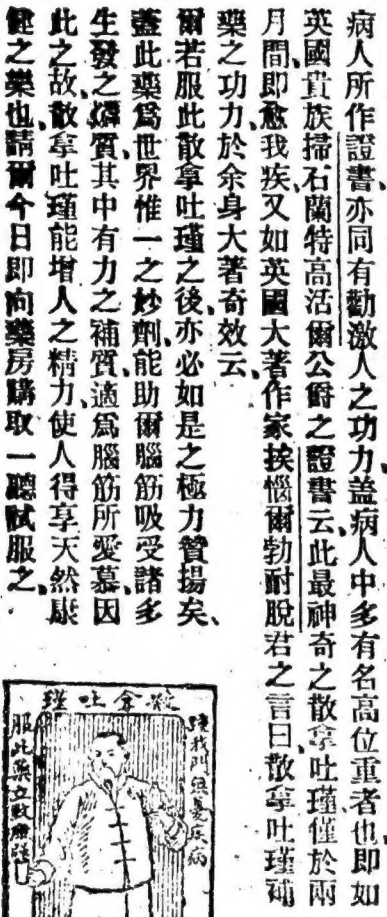 病人所作證書、亦同有勸激人之功力、蓋病人中多有名高位重者也、即如
英國貴族掃石蘭特高活爾公爵之證書云、此最神奇之散拿吐瑾、僅於兩
月間、即愈我疾、又如英國大著作家挨惱爾勃耐脫君之言曰、散拿吐瑾補
藥之功力、於余身大著奇效云、
爾若服此散拿吐瑾之後、亦必如是之極力贊揚矣、
蓋此藥爲世界惟一之妙劑、能助爾腦筋吸受諸多
生發之燐質、其中有力之補質、適爲腦筋所愛慕、因
此之故、散拿吐瑾能增人之精力、使人得享天然康
健之樂也、請爾今日即向藥房購取一聽試服之、
散拿吐瑾
疾病
服此藥立致康強